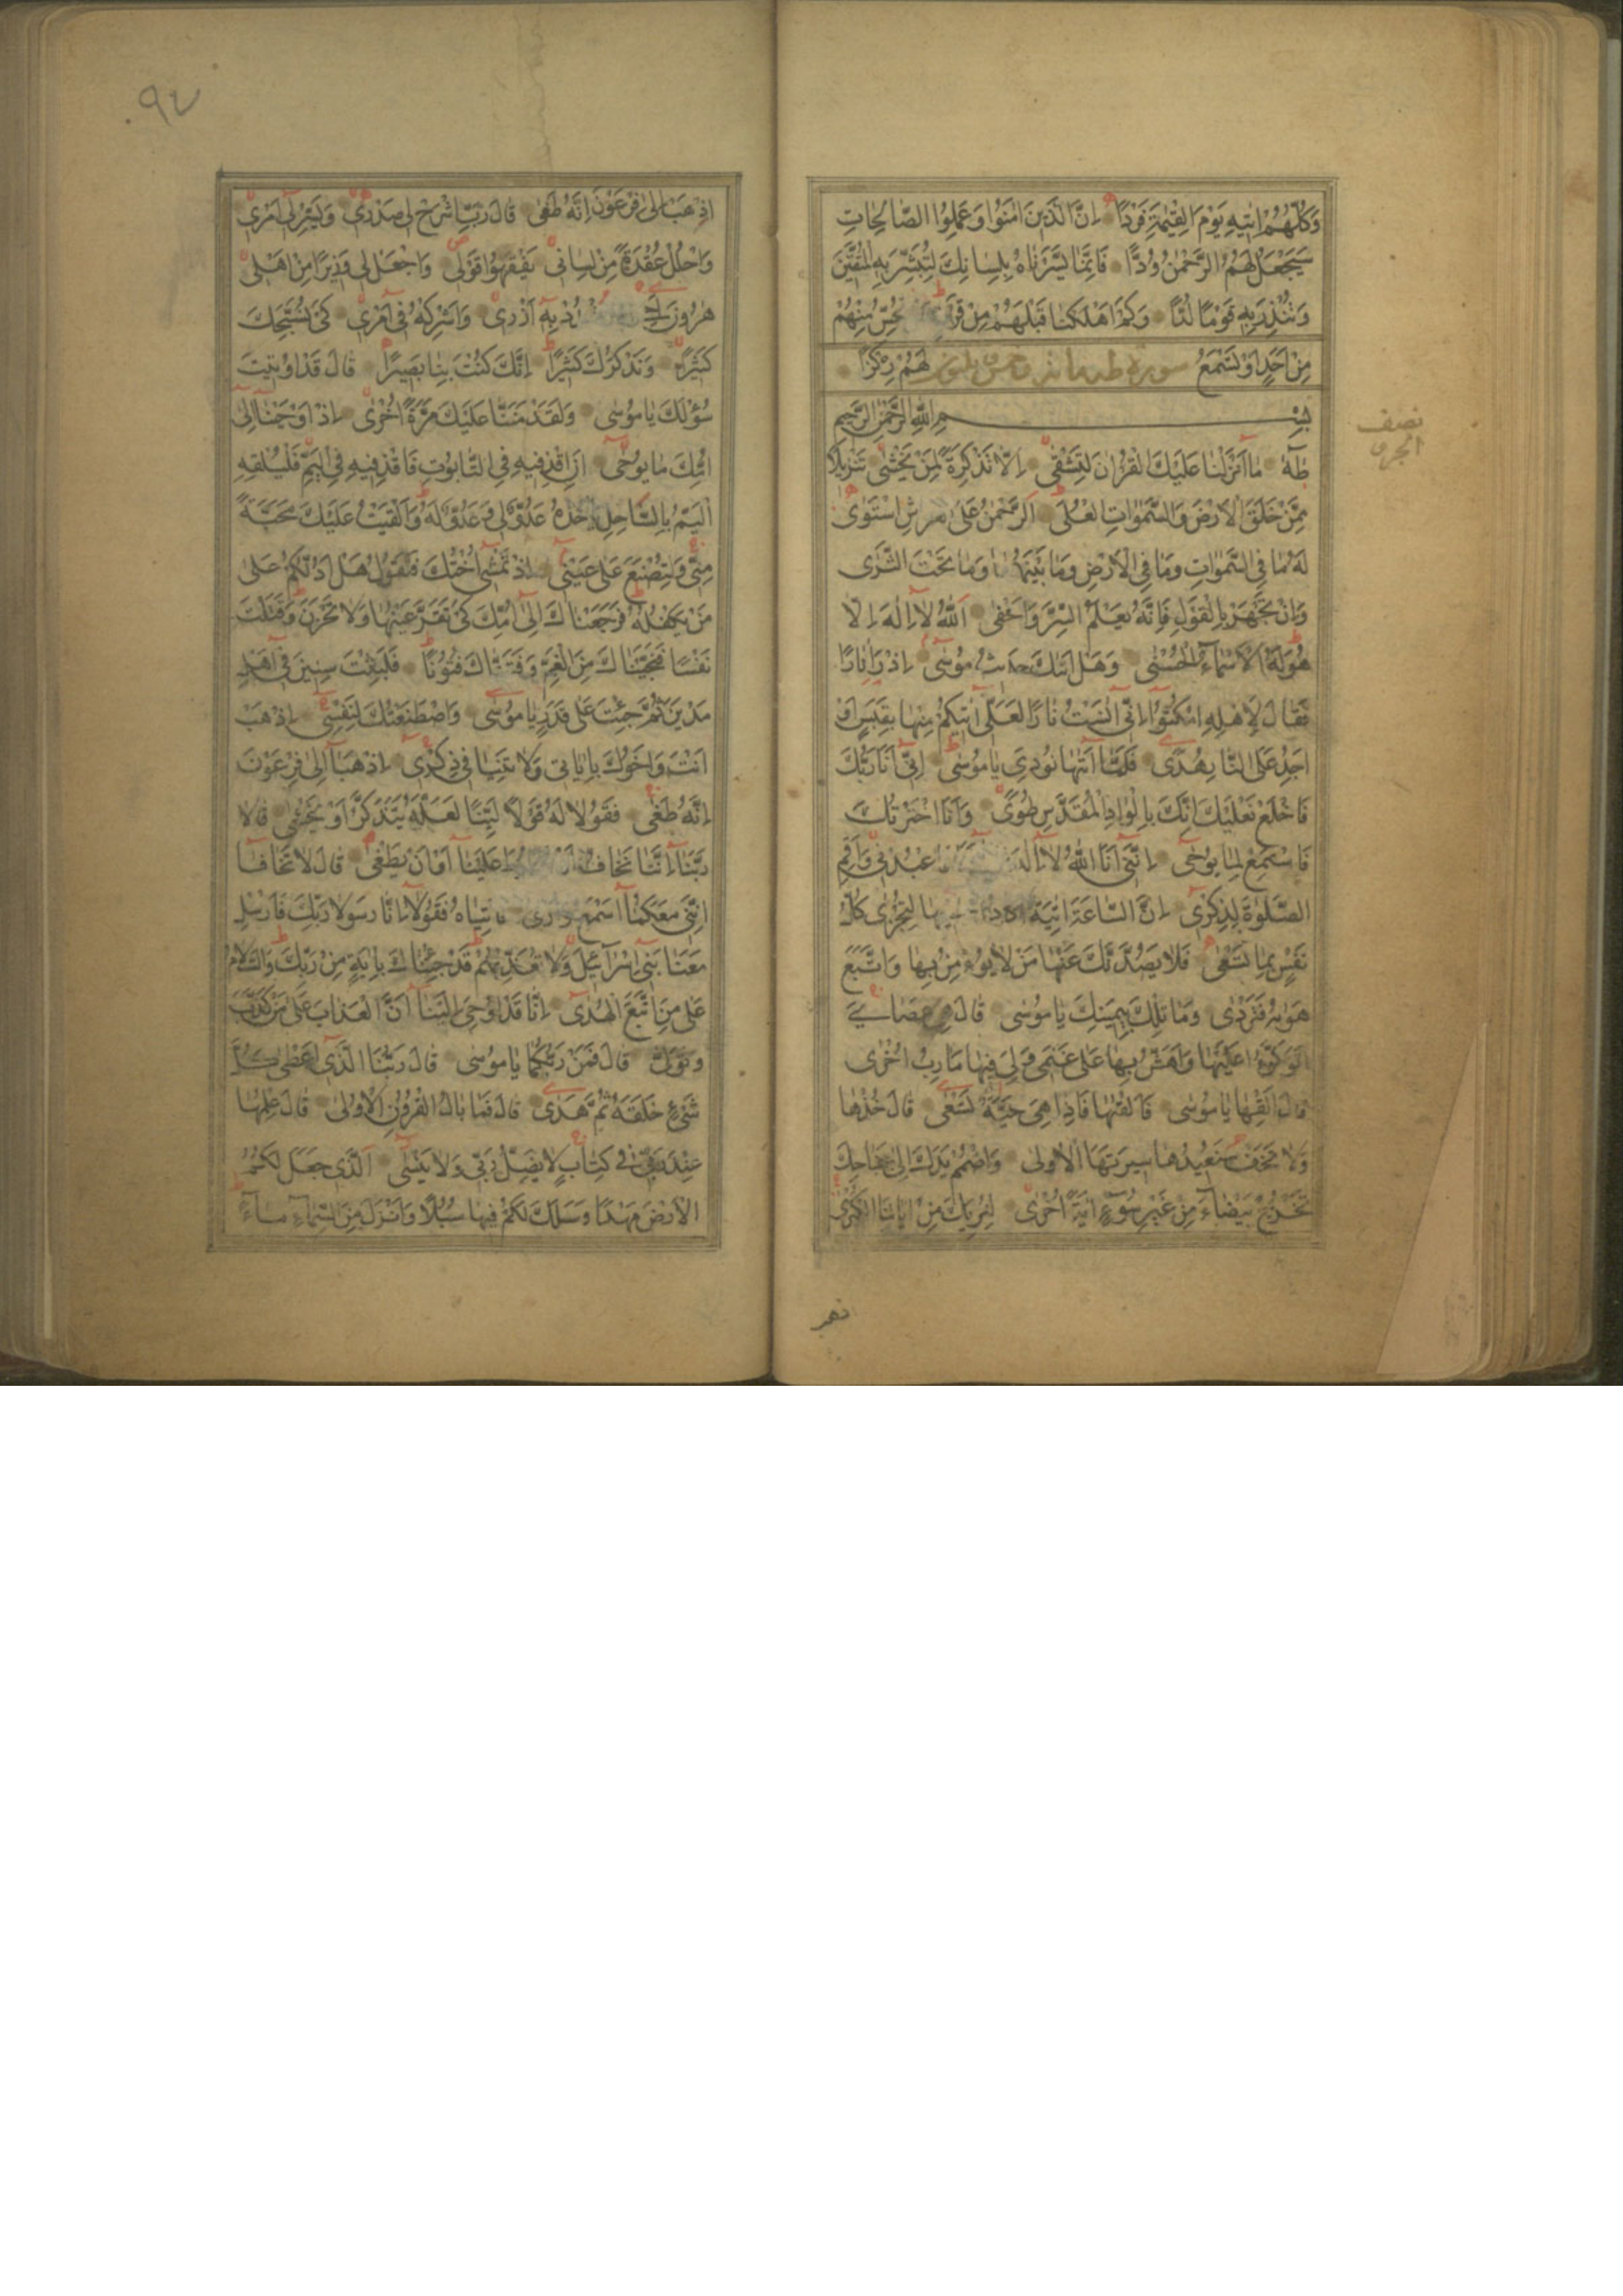 وَكُلُّهُمْ اٰتِيهِ يَوْمَ الْقِيٰمَةِ فَرْدًا اِنَّ الَّذِينَ اٰمَنُوا وَعَمِلُوا الصَّالِحَاتِ
سَيَجْعَلُ لَهُمُ الرَّحْمٰنُ وُدًّا فَاِنَّمَا يَسَّرْنَاهُ بِلِسَانِكَ لِتُبَشِّرَ بِهِ الْمُتَّقِينَ
وَتُنْذِرَ بِهِ قَوْمًا لُدًّا وَكَمْ اَهْلَكْنَا قَبْلَهُمْ مِنْ قَرْنٍ تُحِسُّ مِنْهُمْ
مِنْ اَحَدٍ اَوْ تَسْمَعُ لَهُمْ رِكْزًا
سورة طه
بِسْمِ اللّٰهِ الرَّحْمٰنِ الرَّحِيمِ
نصف
الجزء
طٰهٰ مَا اَنْزَلْنَا عَلَيْكَ الْقُرْاٰنَ لِتَشْقٰى اِلَّا تَذْكِرَةً لِمَنْ يَخْشٰى تَنْزِيلًا
مِمَّنْ خَلَقَ الْاَرْضَ وَالسَّمٰوَاتِ الْعُلٰى اَلرَّحْمٰنُ عَلَى الْعَرْشِ اسْتَوٰى
لَهُ مَا فِي السَّمٰوَاتِ وَمَا فِي الْاَرْضِ وَمَا بَيْنَهُمَا وَمَا تَحْتَ الثَّرٰى
وَاِنْ تَجْهَرْ بِالْقَوْلِ فَاِنَّهُ يَعْلَمُ السِّرَّ وَاَخْفٰى اَللّٰهُ لَا اِلٰهَ اِلَّا
هُوَ لَهُ الْاَسْمَاءُ الْحُسْنٰى وَهَلْ اَتٰيكَ حَدِيثُ مُوسٰى اِذْ رَاٰ نَارًا
فَقَالَ لِاَهْلِهِ امْكُثُوا اِنِّي اٰنَسْتُ نَارًا لَعَلِّي اٰتِيكُمْ مِنْهَا بِقَبَسٍ اَوْ
اَجِدُ عَلَى النَّارِ هُدًى فَلَمَّا اَتٰيهَا نُودِيَ يَا مُوسٰى اِنِّي اَنَا رَبُّكَ
فَاخْلَعْ نَعْلَيْكَ اِنَّكَ بِالْوَادِ الْمُقَدَّسِ طُوًى وَاَنَا اخْتَرْتُكَ
فَاسْتَمِعْ لِمَا يُوحٰى اِنَّنِي اَنَا اللّٰهُ لَا اِلٰهَ فَاعْبُدْنِي وَاَقِمِ
الصَّلٰوةَ لِذِكْرِي اِنَّ السَّاعَةَ اٰتِيَةٌ اَكَادُ اُخْفِيهَا لِتُجْزٰى كُلُّ
نَفْسٍ بِمَا تَسْعٰى فَلَا يَصُدَّنَّكَ عَنْهَا مَنْ لَا يُؤْمِنُ بِهَا وَاتَّبَعَ
هَوٰيهُ فَتَرْدٰى وَمَا تِلْكَ بِيَمِينِكَ يَا مُوسٰى قَالَ هِيَ عَصَايَ
اَتَوَكَّؤُا عَلَيْهَا وَاَهُشُّ بِهَا عَلٰى غَنَمِي وَلِيَ فِيهَا مَاٰرِبُ اُخْرٰى
قَالَ اَلْقِهَا يَا مُوسٰى فَاَلْقٰيهَا فَاِذَا هِيَ حَيَّةٌ تَسْعٰى قَالَ خُذْهَا
وَلَا تَخَفْ سَنُعِيدُهَا سِيرَتَهَا الْاُولٰى وَاضْمُمْ يَدَكَ اِلٰى جَنَاحِكَ
تَخْرُجْ بَيْضَاءَ مِنْ غَيْرِ سُوءٍ اٰيَةً اُخْرٰى لِنُرِيَكَ مِنْ اٰيَاتِنَا الْكُبْرٰى
اذهب
٩٧
اِذْهَبْ اِلٰى فِرْعَوْنَ اِنَّهُ طَغٰى قَالَ رَبِّ اشْرَحْ لِي صَدْرِي وَيَسِّرْ لِي اَمْرِي
وَاحْلُلْ عُقْدَةً مِنْ لِسَانِي يَفْقَهُوا قَوْلِي وَاجْعَلْ لِي وَزِيرًا مِنْ اَهْلِي
هٰرُونَ اَخِي اشْدُدْ بِهِ اَزْرِي وَاَشْرِكْهُ فِي اَمْرِي كَيْ نُسَبِّحَكَ
كَثِيرًا وَنَذْكُرَكَ كَثِيرًا اِنَّكَ كُنْتَ بِنَا بَصِيرًا قَالَ قَدْ اُوتِيتَ
سُؤْلَكَ يَا مُوسٰى وَلَقَدْ مَنَنَّا عَلَيْكَ مَرَّةً اُخْرٰى اِذْ اَوْحَيْنَا اِلٰى
اُمِّكَ مَا يُوحٰى اَنِ اقْذِفِيهِ فِي التَّابُوتِ فَاقْذِفِيهِ فِي الْيَمِّ فَلْيُلْقِهِ
الْيَمُّ بِالسَّاحِلِ يَأْخُذْهُ عَدُوٌّ لِي وَعَدُوٌّ لَهُ وَاَلْقَيْتُ عَلَيْكَ مَحَبَّةً
مِنِّي وَلِتُصْنَعَ عَلٰى عَيْنِي اِذْ تَمْشِي اُخْتُكَ فَتَقُولُ هَلْ اَدُلُّكُمْ عَلٰى
مَنْ يَكْفُلُهُ فَرَجَعْنَاكَ اِلٰى اُمِّكَ كَيْ تَقَرَّ عَيْنُهَا وَلَا تَحْزَنَ وَقَتَلْتَ
نَفْسًا فَنَجَّيْنَاكَ مِنَ الْغَمِّ وَفَتَنَّاكَ فُتُونًا فَلَبِثْتَ سِنِينَ فِي اَهْلِ
مَدْيَنَ ثُمَّ جِئْتَ عَلٰى قَدَرٍ يَا مُوسٰى وَاصْطَنَعْتُكَ لِنَفْسِي اِذْهَبْ
اَنْتَ وَاَخُوكَ بِاٰيَاتِي وَلَا تَنِيَا فِي ذِكْرِي اِذْهَبَا اِلٰى فِرْعَوْنَ
اِنَّهُ طَغٰى فَقُولَا لَهُ قَوْلًا لَيِّنًا لَعَلَّهُ يَتَذَكَّرُ اَوْ يَخْشٰى قَالَا
رَبَّنَا اِنَّنَا نَخَافُ اَنْ يَفْرُطَ عَلَيْنَا اَوْ اَنْ يَطْغٰى قَالَ لَا تَخَافَا
اِنَّنِي مَعَكُمَا اَسْمَعُ وَاَرٰى فَاْتِيَاهُ فَقُولَا اِنَّا رَسُولَا رَبِّكَ فَاَرْسِلْ
مَعَنَا بَنِي اِسْرَائِيلَ وَلَا تُعَذِّبْهُمْ قَدْ جِئْنَاكَ بِاٰيَةٍ مِنْ رَبِّكَ وَالسَّلَامُ
عَلٰى مَنِ اتَّبَعَ الْهُدٰى اِنَّا قَدْ اُوحِيَ اِلَيْنَا اَنَّ الْعَذَابَ عَلٰى مَنْ كَذَّبَ
وَتَوَلّٰى قَالَ فَمَنْ رَبُّكُمَا يَا مُوسٰى قَالَ رَبُّنَا الَّذِي اَعْطٰى كُلَّ
شَيْءٍ خَلْقَهُ ثُمَّ هَدٰى قَالَ فَمَا بَالُ الْقُرُونِ الْاُولٰى قَالَ عِلْمُهَا
عِنْدَ رَبِّي فِي كِتَابٍ لَا يَضِلُّ رَبِّي وَلَا يَنْسٰى اَلَّذِي جَعَلَ لَكُمُ
الْاَرْضَ مَهْدًا وَسَلَكَ لَكُمْ فِيهَا سُبُلًا وَاَنْزَلَ مِنَ السَّمَاءِ مَاءً